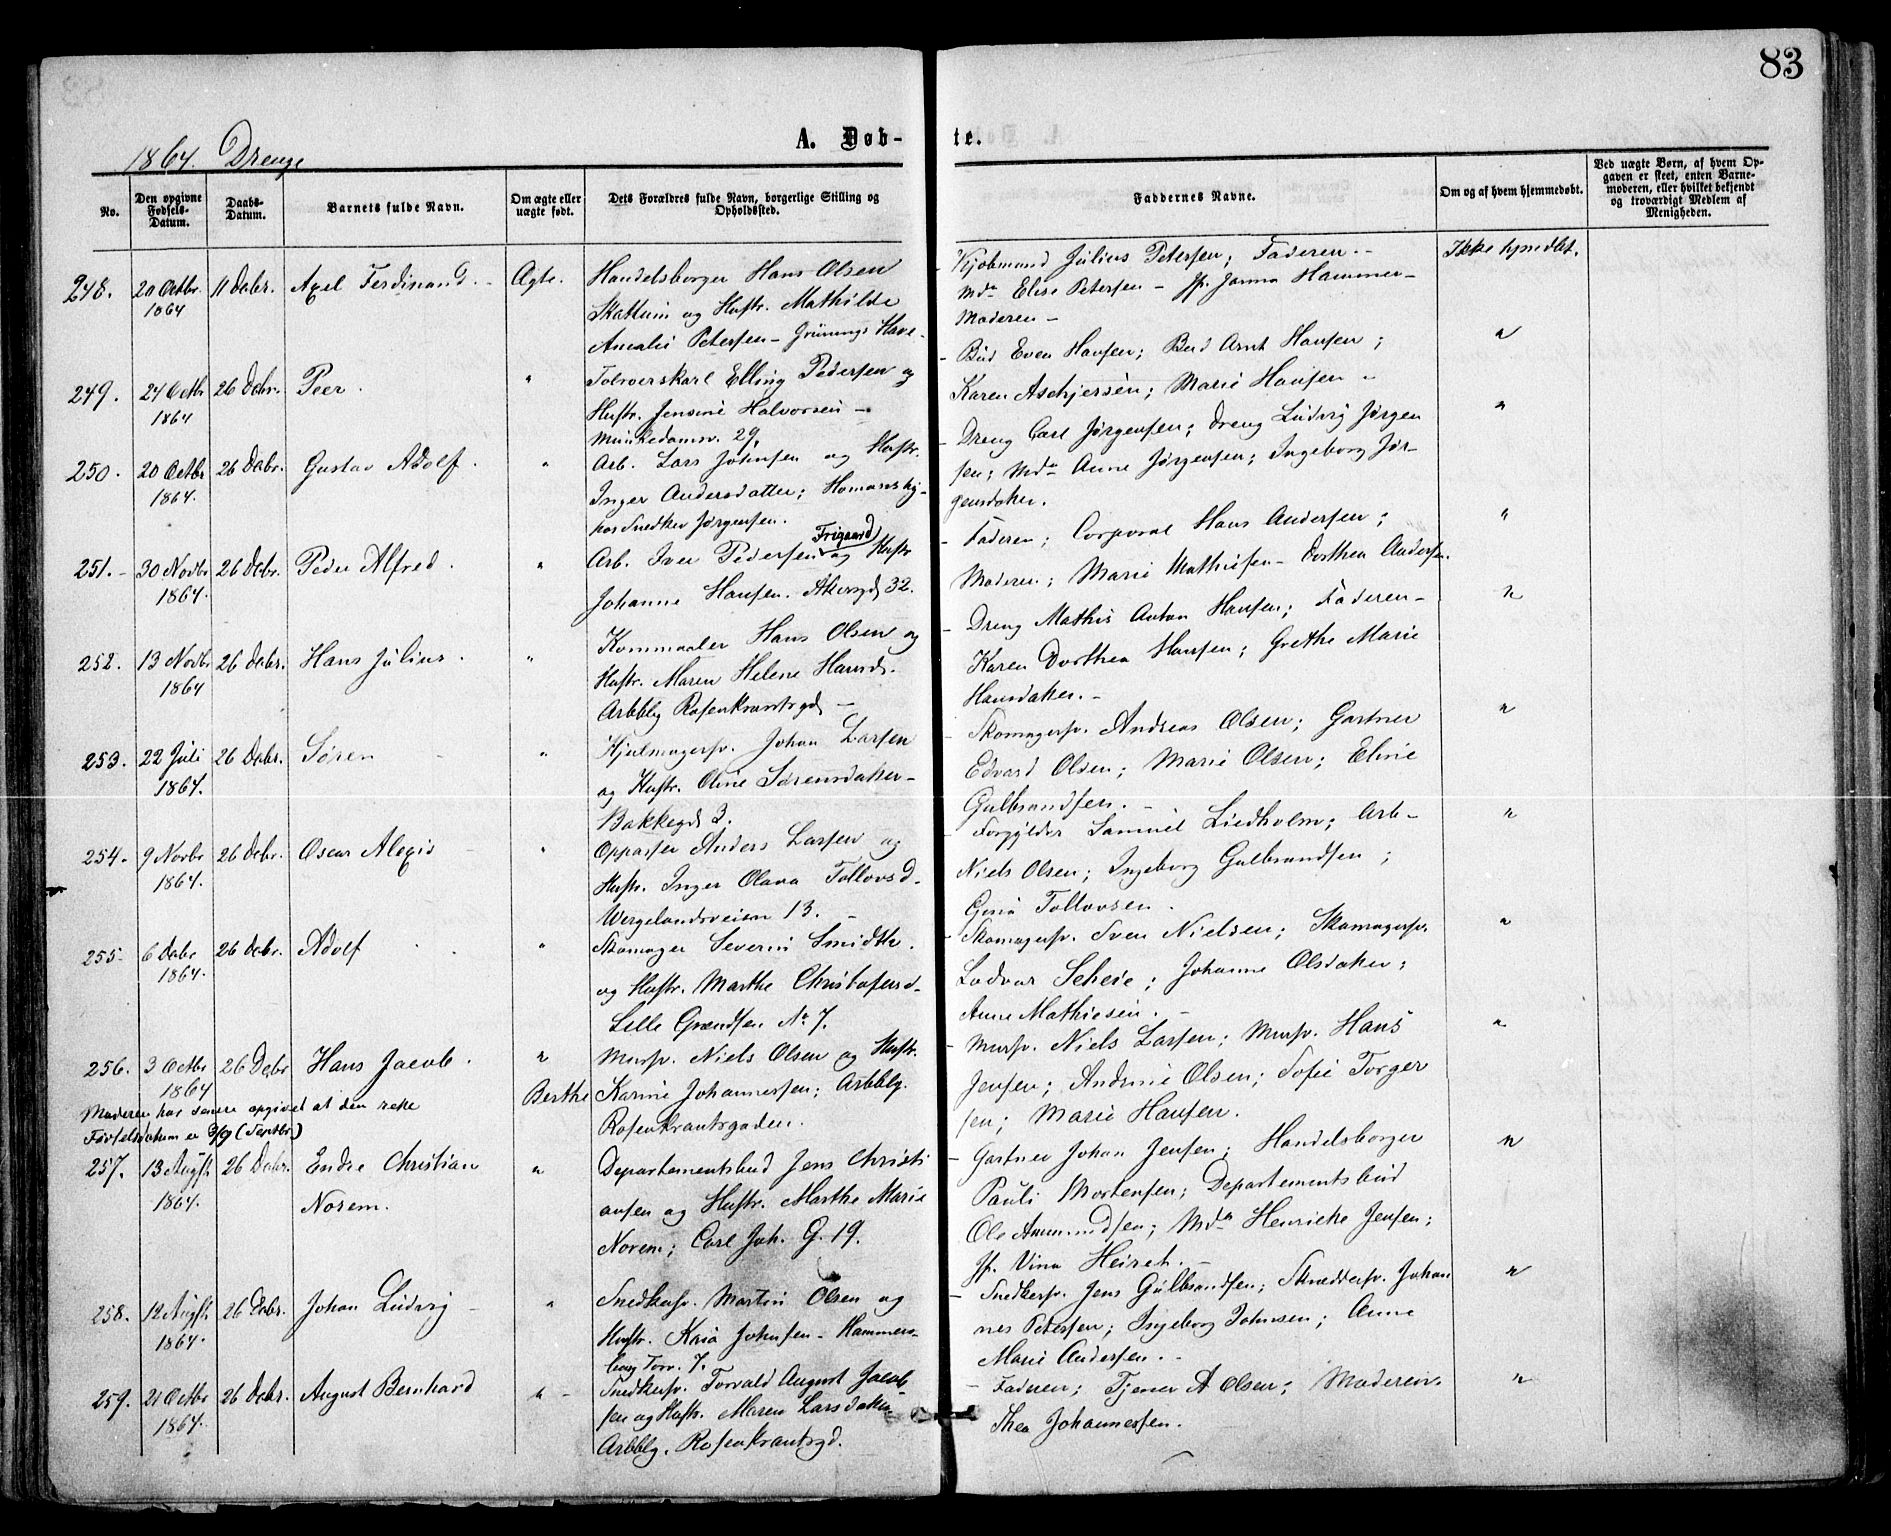 83
A. Døb-
te.
1864. Drenge
No.
Den opgivne Fødsels-Datum.
Daabs-Datum.
Barnets fulde Navn.
Om ægte eller uægte født.
Dets Forældres fulde Navn, borgerlige Stilling og Opholdssted.
Faddernes Navne.
Om og af hvem hjemmedøbt.
Ved uægte Børn, af hvem Opgaven er skeet, enten Barnemoderen, eller hvilket bekjendt og troværdigt Medlem af Menigheden.
248. 20 Octbr 1864 11 Debr. Axel Ferdinand. Ægte.
Handelsborger Hans Olsen
Skattum og Hustr. Mathilde
Amalie Petersen - Grünings Have.
Kjøbmand Julius Petersen; Faderen -
Mda Elise Petersen - Jfr. Janna Hammer -
Moderen -
Ikke hjmdbt.
249. 24 Octbr 1864 26 Debr. Peer. "
Tolverskarl Elling Pedersen og
Hustr. Jensine Halvorsen -
Munkedamsv. 29,
Bud Even Hansen; Bud Arnt Hansen;
Karen Aschjersen; Marie Hansen -
"
250. 20 Octbr 1864. 26 Debr. Gustav Adolf. "
Arb. Lars Johnsen og Hustr.
Inger Andersdatter; Homansby-
hos Snedker Jørgensen.
Dreng Carl Jørgensen; Dreng Ludvig Jørgen
sen; Mda Anne Jørgensen; Ingeborg Jør-
gensdater.
"
251. 30 Novbr 1864. 26 Debr. Peder Alfred. "
Frigaard
Arb. Iver Pedersen og Hustr
Johanne Hansen. Akersgd 32.
Faderen; Corporal Hans Andersen;
Moderen; Marie Mathisen - Dorthea Andersen.
"
252. 13 Novbr 1864 26 Debr. Hans Julius. "
Kornmaaler Hans Olsen og
Hustr. Maren Helene Hansd.
Arbblg Rosenkrantzgd -
Dreng Mathis Anton Hansen; Faderen -
Karen Dorthea Hansen; Grethe Marie
Hansdater. -
"
253. 22 Juli 1864. 26 Debr. Søren "
Hjulmagersv. Johan Larsen
og Hustr. Oline Sørensdater -
Bakkegd 3.
Skomagersv. Andreas Olsen; Gartner
Edvard Olsen; Marie Olsen; Eline
Gulbrandsen. -
"
254. 9 Novbr 1864. 26 Debr. Oscar Alexis "
Oppasser Anders Larsen og
Hustr. Inger Olava Tollovsd.
Wergelandsveien 13. -
Forgylder Samuel Liedholm; Arb-
Niels Olsen; Ingeborg Gulbrandsen;
Gina Tollovsen.
"
255. 6 Debr 1864. 26 Debr. Adolf "
Skomager Severin Smidth.
og Hustr. Marthe Christofersd.
Lille Grændsen No 7.
Skomagersv. Sven Nielsen; Skomagersv.
Ladvar Scheie; Johanne Olsdater;
Anne Mathiesen. -
"
256. 3 Octbr 1864 26 Debr Hans Jacob. "
Mursv. Niels Olsen og Hustr.
Berthe Karine Johannessen; Arbblg.
Rosenkrantzgaden.
Mursv. Niels Larsen; Mursv. Hans
Jensen; Andrine Olsen; Sofie Torger
sen; Marie Hansen.
"
Moderen har senere opgivet at den rette
Fødselsdatum er 3/9 (Septbr)
257. 13 Augst. 1864. 26 Debr. Endre Christian Norem. "
Departementsbud Jens Christi
ansen og Hustr. Marthe Marie
Norem; Carl Joh. G. 19.
Gartner Johan Jensen; Handelsborger
Pauli Mortensen; Departementsbud
Ole Amundsen; Mda Henriche Jensen;
Jfr. Vina Heiret. -
"
258. 12 Augst. 1864. 26 Debr. Johan Ludvig "
Snedkersv. Martin Olsen og
Hustr. Kaia Johnsen - Hammers-
borg Torv. 7.
Snedkersv. Jens Gulbrandsen; Skræddersv. Johan
nes Petersen; Ingeborg Johnsen; Anne
Marie Andersen. -
"
259. 21 Octbr 1864. 26 Debr. August Bernhard "
Snedkersv. Torvald August Jacob
sen og Hustr. Maren Larsdater
Arbblg. Rosenkrantzgd.
Faderen; Tjener A Olsen; Moderen.
Thea Johannessen.
"